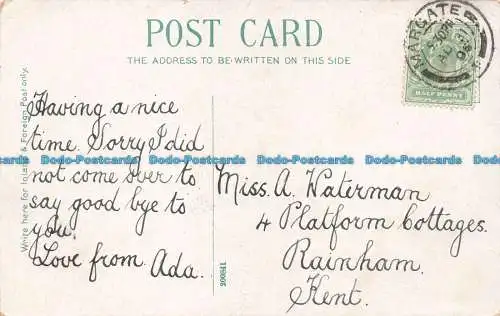 POST CARD
THE ADDRESS TO BE WRITTEN ON THIS SIDE
MARGATE
HALF PENNY
Write here for Inland & Foreign Post only.
Having a nice
time. Sorry I did
not come over to
say good bye to
you.
Love from Ada.
Miss. A. Waterman.
4 Platform Cottages.
Rainham.
Kent.
Dodo-Postcards Dodo-Postcards Dodo-Postcards Dodo-Postcards Dodo-Postcards